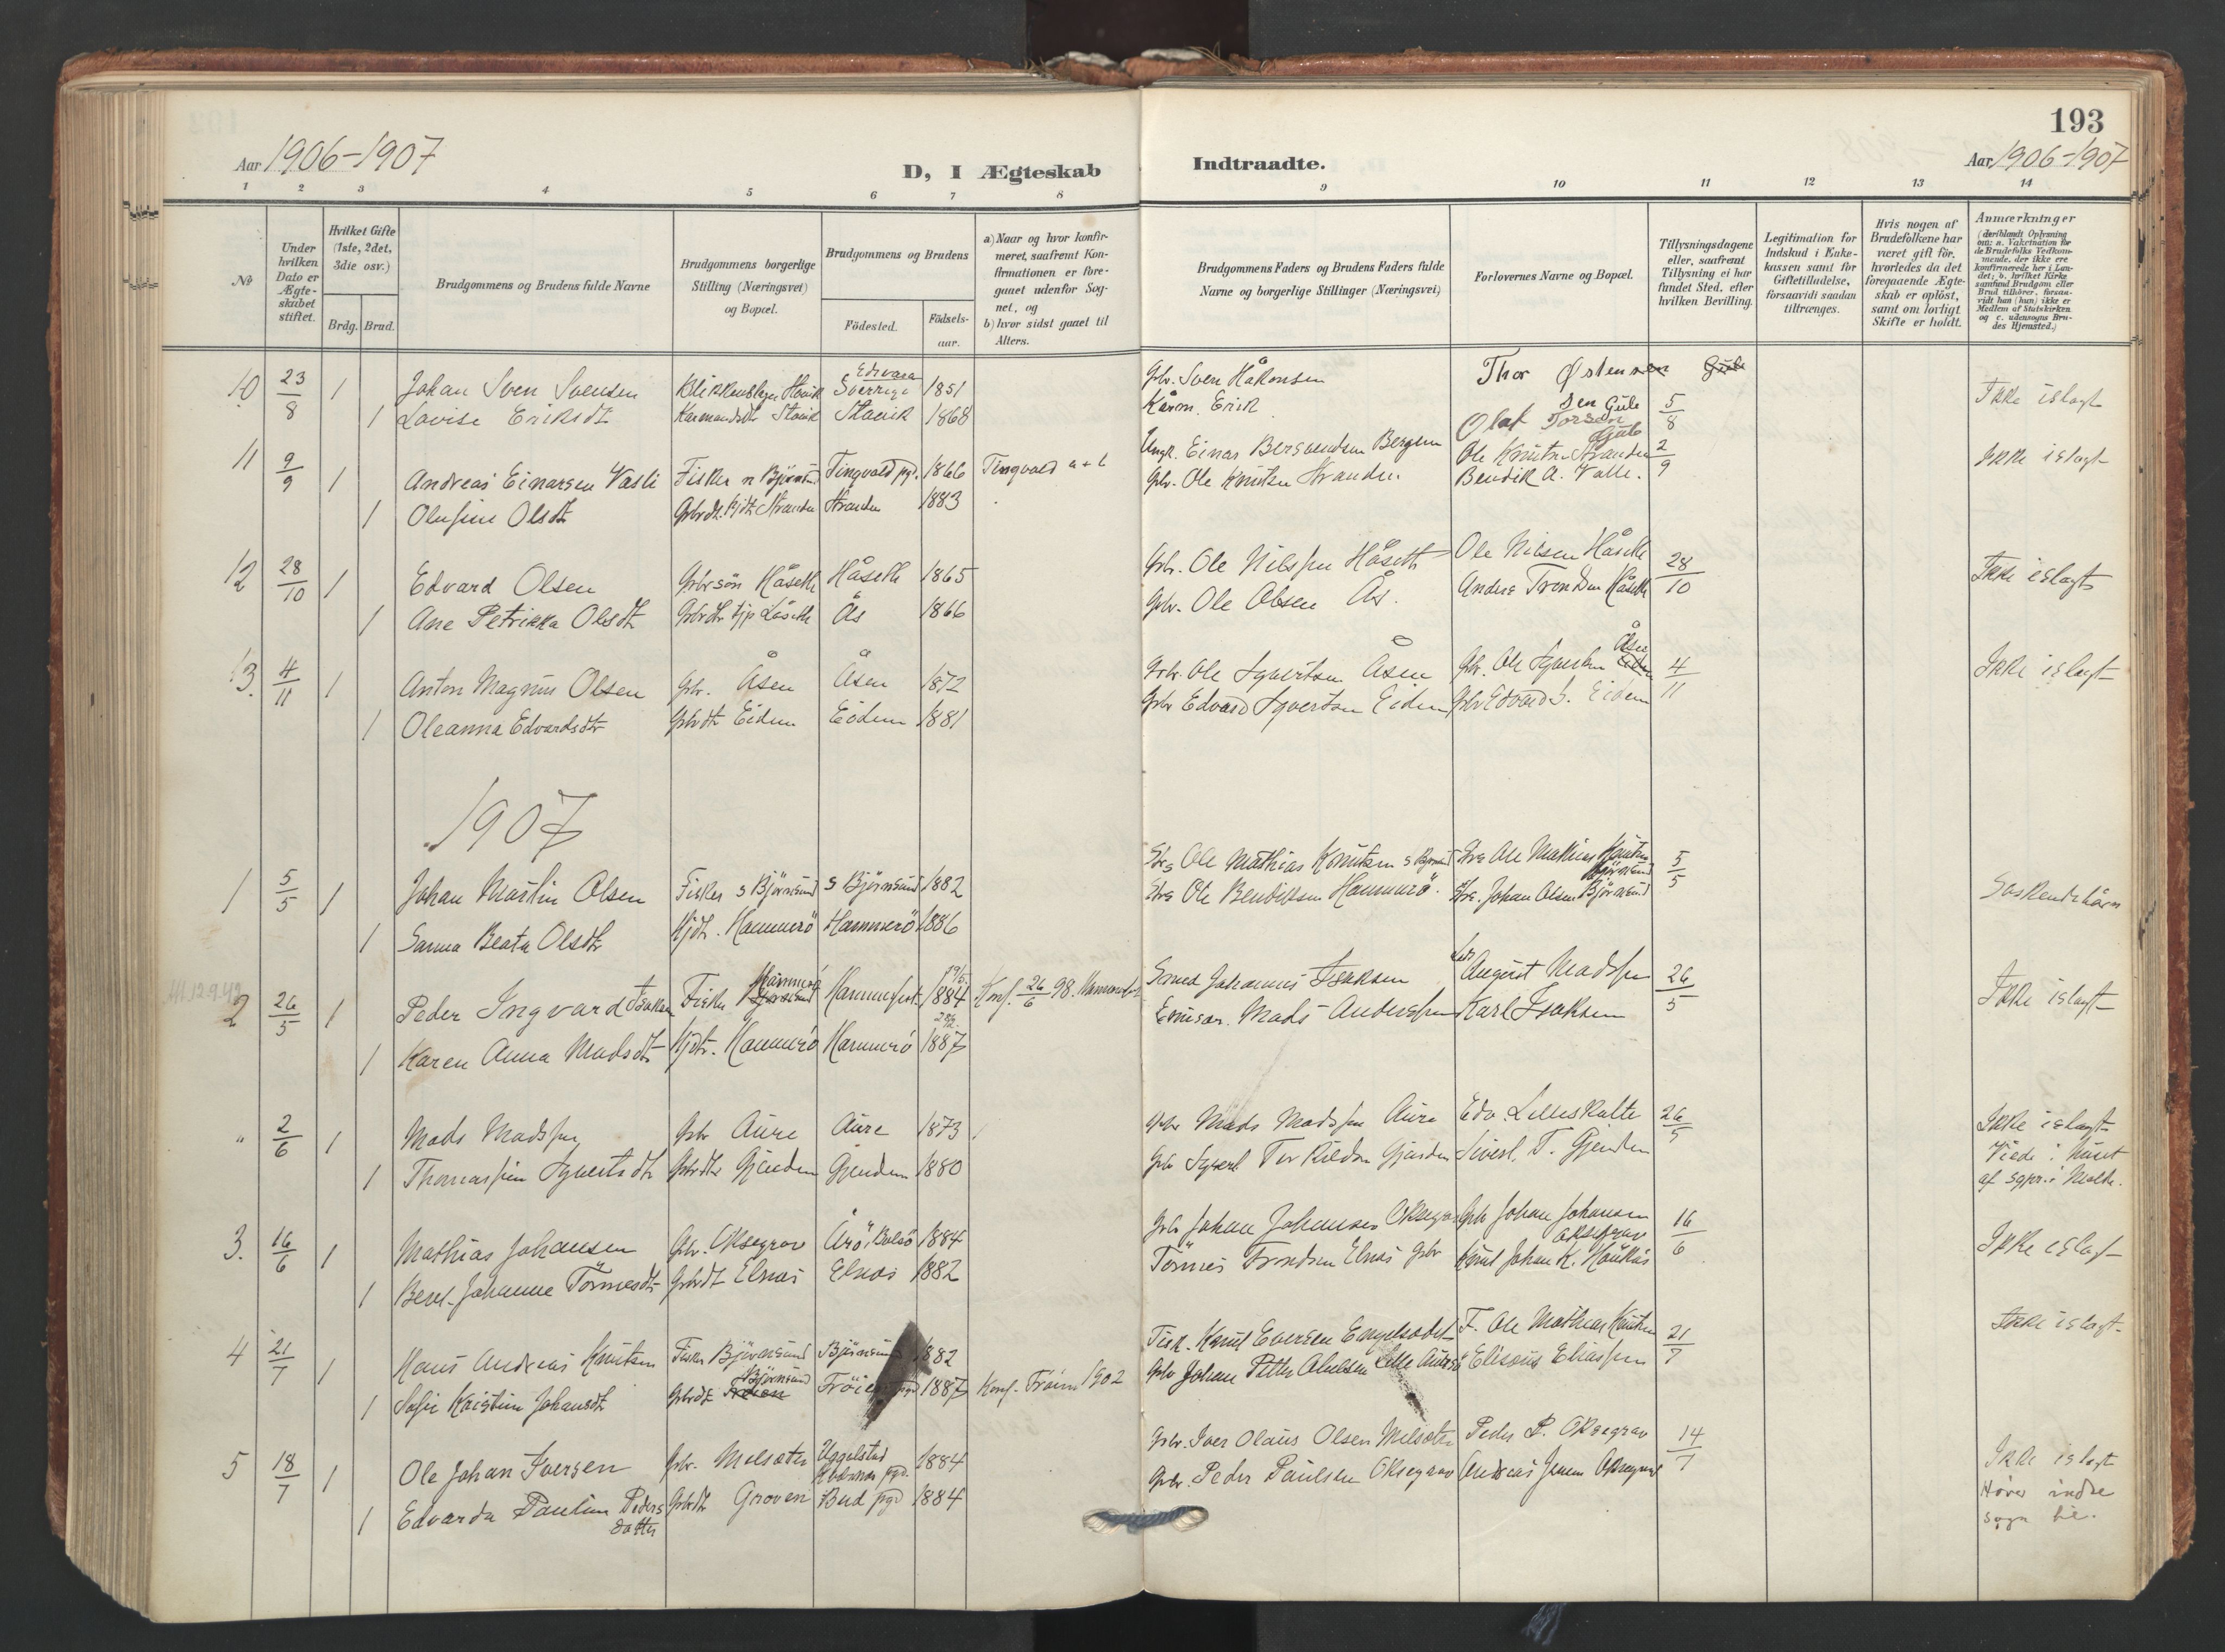 193
Aar 1906-1907
D, I Ægteskab Indtraadte.
Aar 1906-1907
1 2 3 4 5 6 7 8 9 10 11 12 13 14
No
Under hvilken Dato er Ægte-skabet stiftet.
Hvilket Gifte (1ste, 2det, 3die osv.)
Brdg. Brud.
Brudgommens og Brudens fulde Navne
Brudgommens borgerlige Stilling (Næringsvei) og Bopæl.
Brudgommens og Brudens
Födested.
Födsels-aar.
a) Naar og hvor konfir-meret, saafremt Kon-firmationen er fore-gaaet udenfor Sog-net, og
b) hvor sidst gaaet til Alters.
Brudgommens Faders og Brudens Faders fulde Navne og borgerlige Stillinger (Næringsvei)
Forlovernes Navne og Bopæl.
Tillysningsdagene eller, saafremt Tillysning ei har fundet Sted, efter hvilken Bevilling.
Legitimation for Indskud i Enke-kassen samt för Giftetilladelse, forsaavidt saadan tiltrænges.
Hvis nogen af Brudefolkene har været gift för, hvorledes da det foregaaende Ægte-skab er oplöst, samt om lovligt Skifte er holdt.
Anmærkninger
(deriblandt Oplysning om: a. Vakcination for de Brudefolks Vedkom-mende, der ikke ere konfirmerede her i Lan-det; b. hvilket Kirke-samfund Brudgom eller Brud tilhörer, forsaa-vidt han (hun) ikke er Medlem af Statskirken og c. udensogns Bru-des Hjemsted.)
10 23/8 1 Johan Sven Svensen Sverrige 1851 Gbr. Sven Håkonsen Thor Østensen Ikke islagt
1 Lovise Eriksdt Stavik 1868 Erik Olaf Torsen Gule 5/8
11 9/9 1 Andreas Einarsen Vasli Fisker n Björnsund Tingvold pgd. 1866 Tingvold a+b Ungk. Einar Bersvendsen Bergem Ole Knutsen Stranden 2/9 Ikke islagt
1 Olufine Olsdt Stranden 1883 Gbr. Ole Knutsen Stranden Bendik A. Valle.
12 28/10 1 Edvard Olsen Gbrsön Håseth Håseth 1865 Gbr. Ole Nilssen Håseth Ole Nilsen Håseth 28/10 Ikke islagt
1 Ane Petrikka Olsdt Ås 1866 Gbr. Ole Olsen Ås. Håseth
13. 4/11 1 Anton Magnus Olsen Gbr. Åsen Åsen 1872 Gbr. Ole Syvertsen Åsen Gbr. Ole Syvertsen Åsen 4/11 Ikke islagt
1 Oleanna Edvardsdtr Gbrdt Eidem Eidem 1881 Gbr Edvard Syvertsen Eidem Gbr Edvard S. Eidem
1907
1 5/5 1 Johan Martin Olsen Fisker s Björnsund s Björnsund 1882 Ole Mathias Knutsen s Björnsund Ole Mathias Knutsen Björnsund 5/5 Söskendebörn
1 Sanna Beata Olsdtr Hjdt. Hammerö Hammerö 1886 Ole Bendiksen Hammerö. Johan Olsen Björnsund
2 26/5 1 Peder Ingvard Isaksen Fisker Hammerö Hammerfest 1884 Konf. 26/6 98. Hammerfest Smed Johannes Isaksen August Madssen 26/5 Ikke islagt
1 Karen Anna Madsdt Hjdt. Hammerö Hammerö 1887 Emisær. Mads Anderssen Karl Isaksen
" 2/6 1 Mads Madssen Gbr Aure Aure 1873 Gbr Mads Madssen Aure Edv. Lilleskalte 26/5 Ikke islagt
1 Thomassine Syvertsdt Gbrdt Gjenden Gjenden 1880 Gbr Syvert Torkildsen Gjenden Sivert T. Gjenden Viede i huset af sgpr. i Molde.
3. 16/6 1 Mathias Johansen Gbr. Oksegrav Årö i Bolsö 1884 Gbr Johan Johansen Oksegrav Gbr Johan Johansen Oksegrav 16/6 Ikke islagt
1 Beret-Johanne Törrnesdt Gbrdt Elnæs Elnæs 1882 Törrnes Trondsen Elnæs Gbr Knut Johan K. Haukås
4 21/7 1 Hans Andreas Knutsen Fisker Björnsund Björnsund 1882 Fisk. Knut Eversen F. Ole Mathias Knutsen 21/7 Ikke islagt
1 Sofie Kristine Johansdt Gbrdt Björnsund Fröien pgd 1887 Konf. Fröien 1902 Gbr Johan Petter Elisæus Eliassen
5 18/7 1 Ole Johan Iversen Gbr. Melsæter Uggelstad pgd. 1884 Gbr. Iver Olaus Olsen Melsæter Peder P. Oksegrav 14/7 Ikke islagt
1 Edvarda Pauline Peders datter Gbrdt Groven Bud pgd 1884 Gbr. Peder Paulsen Oksegrav Andreas Jensen Oksegrav Hörer indre sogn til.